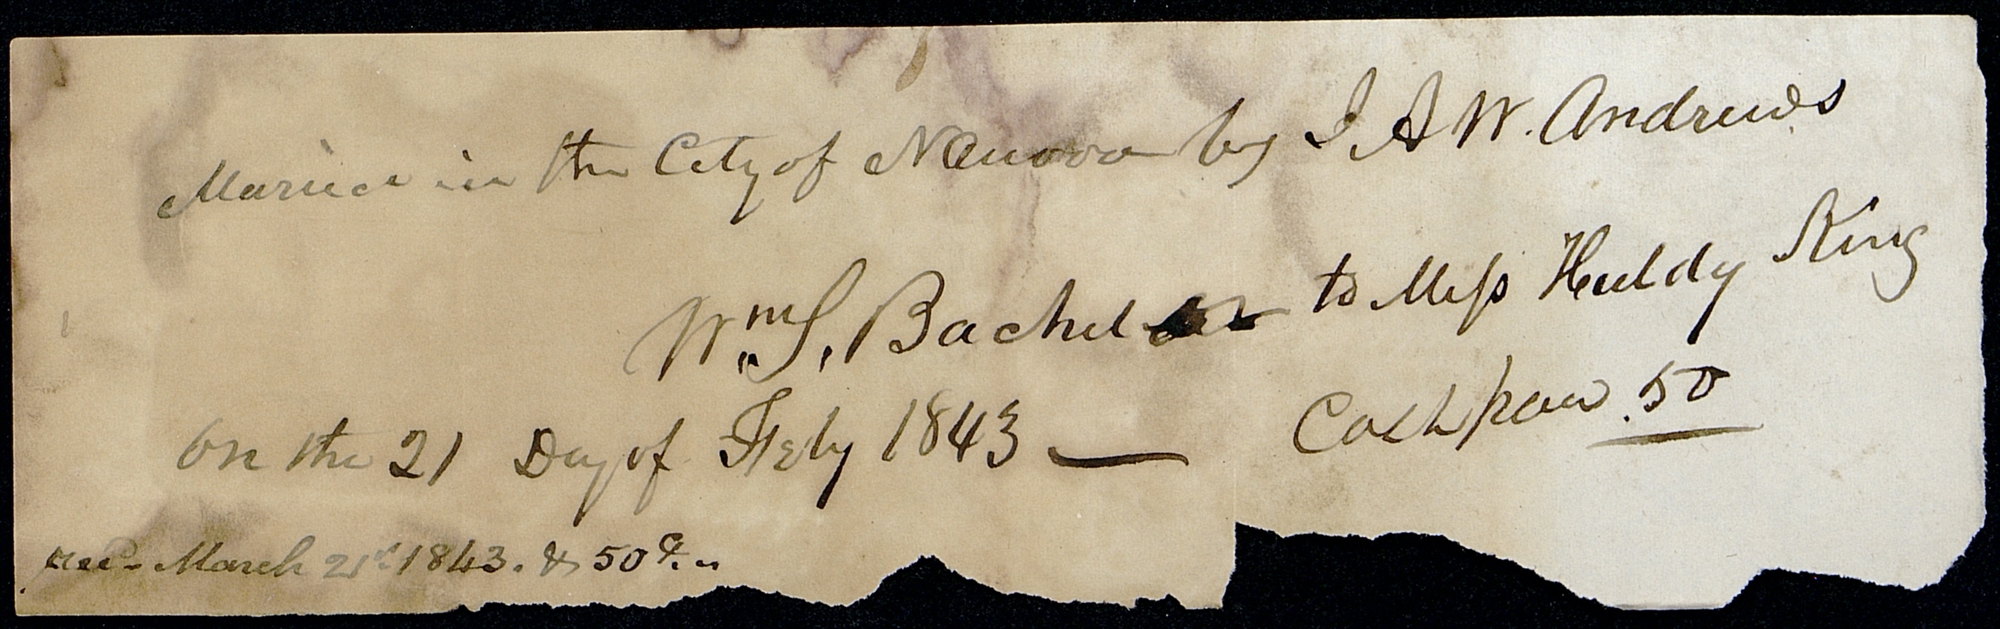 Maried in the City of Nauvoo by I A W. Andrews
Wm. S. Bachelor to Miss Huldy King
on the 21 Day of Feby 1843 — Cash paid .50
rec. March 21st 1843. & 50 c.